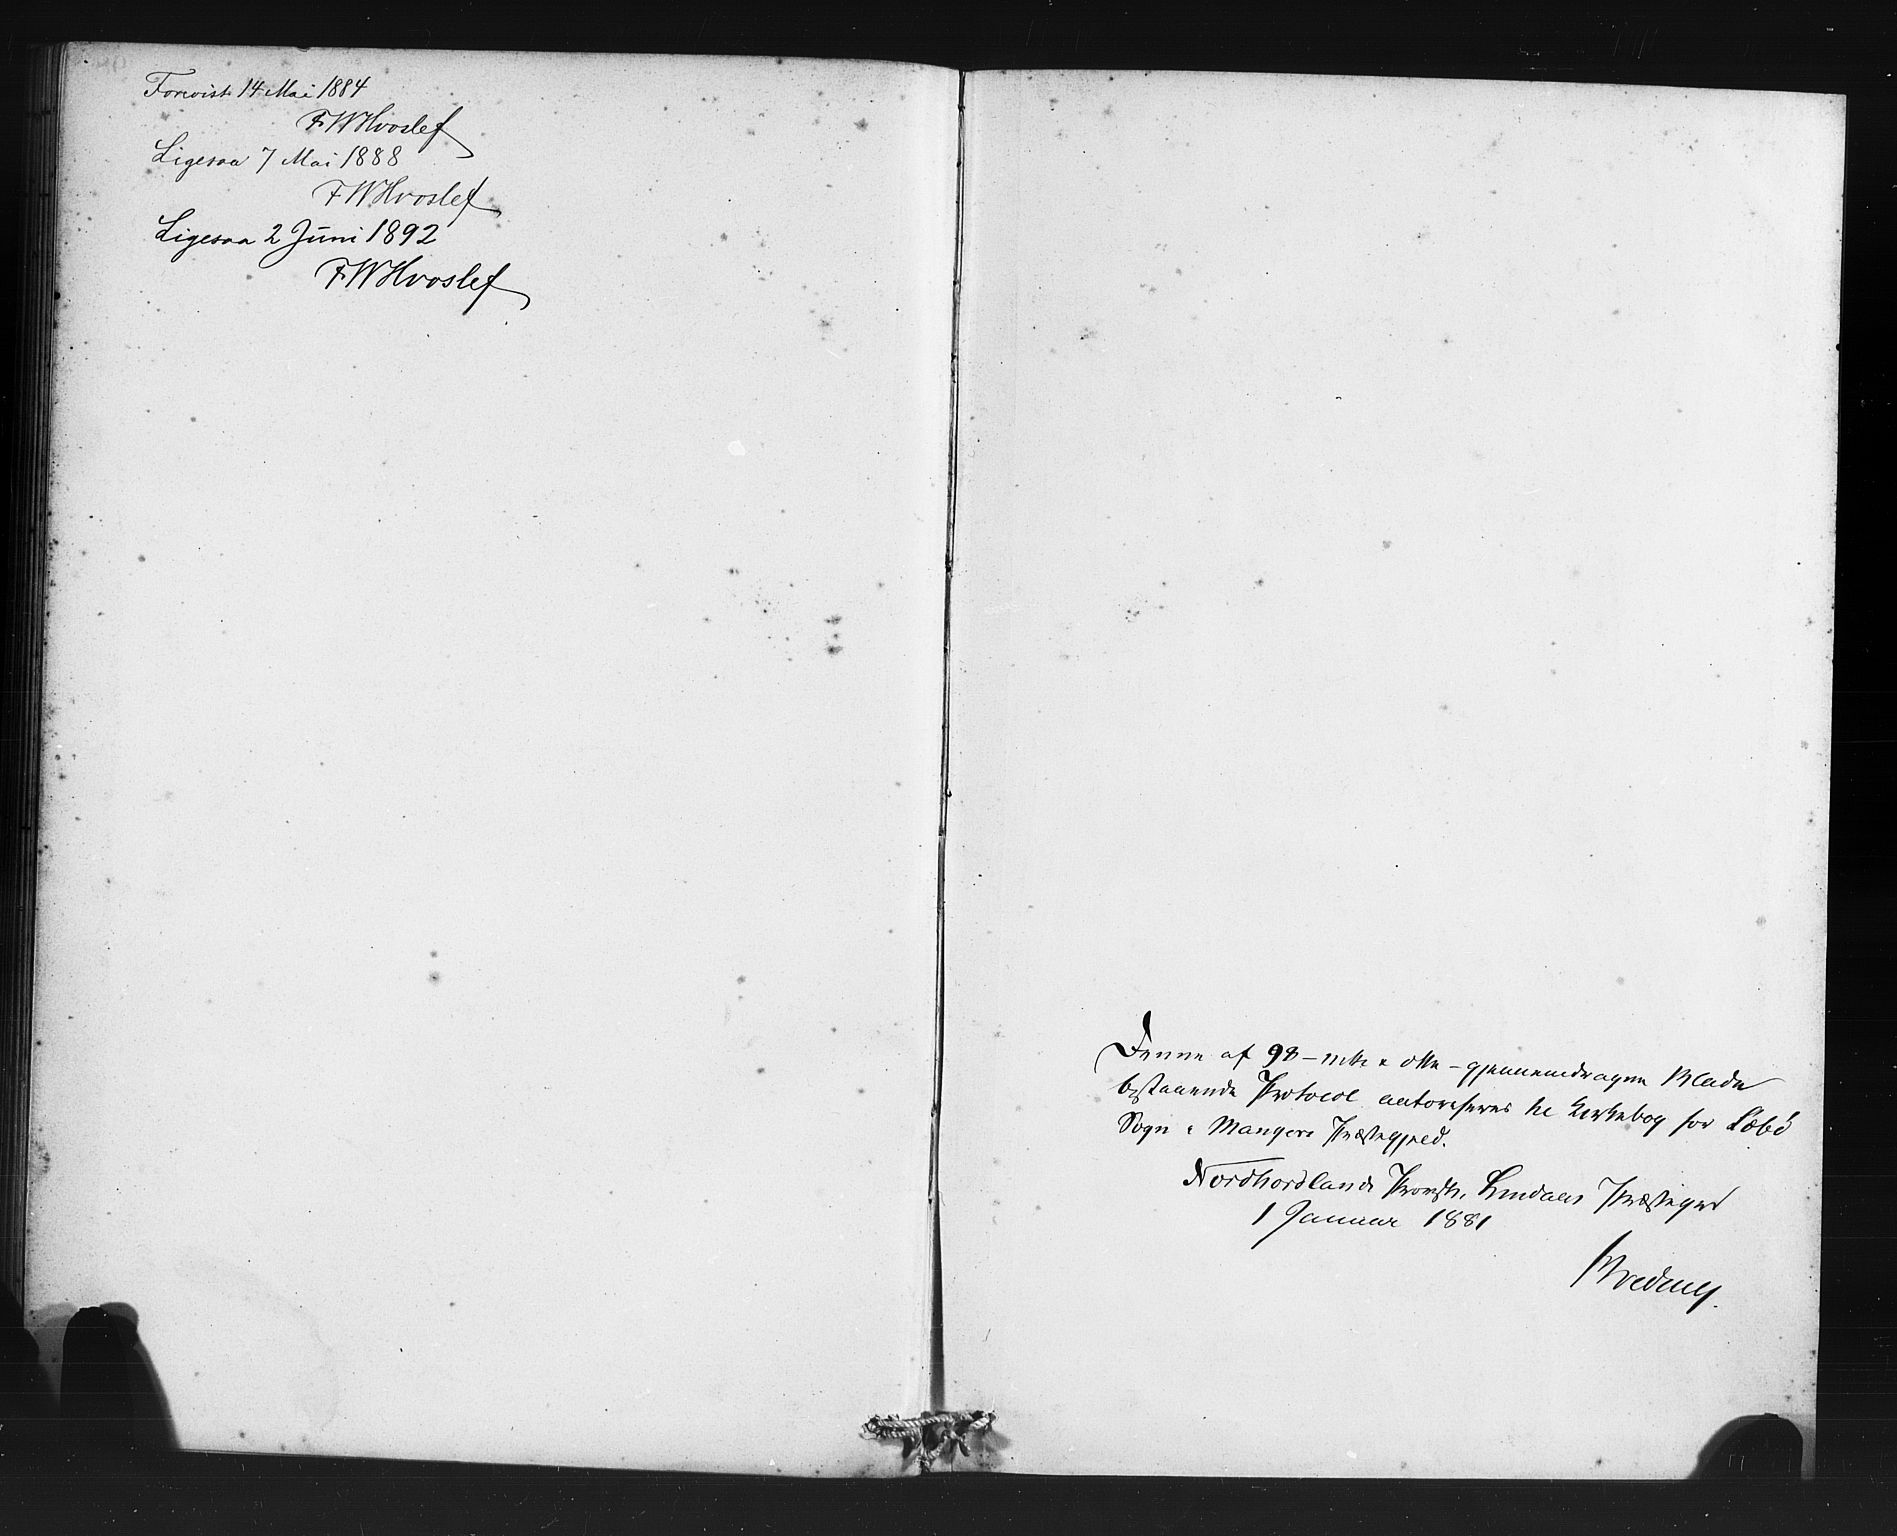 Forevist 14 Mai 1884
F W Hvoslef
Ligesaa 7 Mai 1888
F W Hvoslef
Ligesaa 2 Juni 1892
F W Hvoslef
Denne af 98 – nitti otte – gjennemdragne Blade
bestaaende Protocol autoriseres til Kirkebog for Sæbö
Sogn i Mangers Præstegjeld.
Nordhordlands Provsti, Lindaas Præstegard
1 Januar 1881